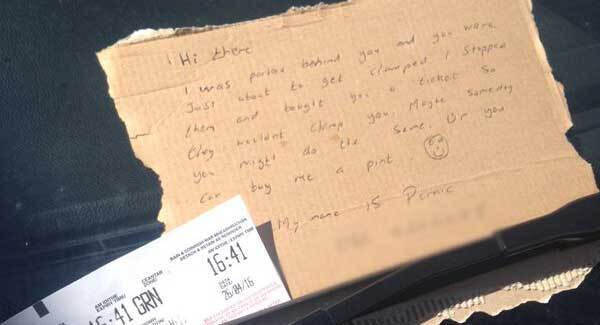 Hi there
I was parked behind you and you were
Just about to get clamped I stopped
them and bought you a ticket so
they wouldnt clamp you. Maybe someday
you might do the same. Or you
can buy me a pint.
My name is
BAIN
& RETAIN
AM
EXPIRY TIME
16:41 GRN
CEANTAR
ZONE
AM
EXPIRY TIME
16:41
DATE
26/04/16